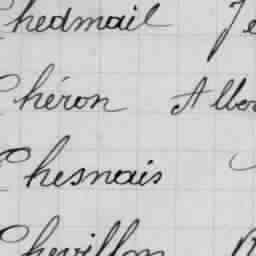 Chedmail Je
Chéron Albe
Chesnais
Chevillon